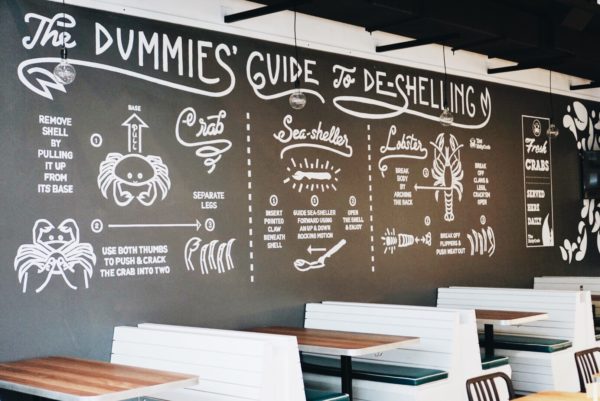 The DUMMIES' GUIDE To DE-SHELLING
Crab
REMOVE
SHELL
BY
PULLING
IT UP
FROM
ITS BASE
1
BASE
PULL
2
USE BOTH THUMBS
TO PUSH & CRACK
THE CRAB INTO TWO
SEPARATE
LEGS
3
Sea-sheller
1
INSERT
POINTED
CLAW
BENEATH
SHELL
2
GUIDE SEA-SHELLER
FORWARD USING
AN UP & DOWN
ROCKING MOTION
3
OPEN
THE SHELL
& ENJOY
Lobster
BREAK
BODY
BY
ARCHING
THE BACK
1
BREAK
OFF
CLAWS &
LEGS,
CRACK 'EM
OPEN
2
3
BREAK OFF
FLIPPERS &
PUSH MEAT OUT
Fresh
CRABS
SERVED
HERE
DAILY